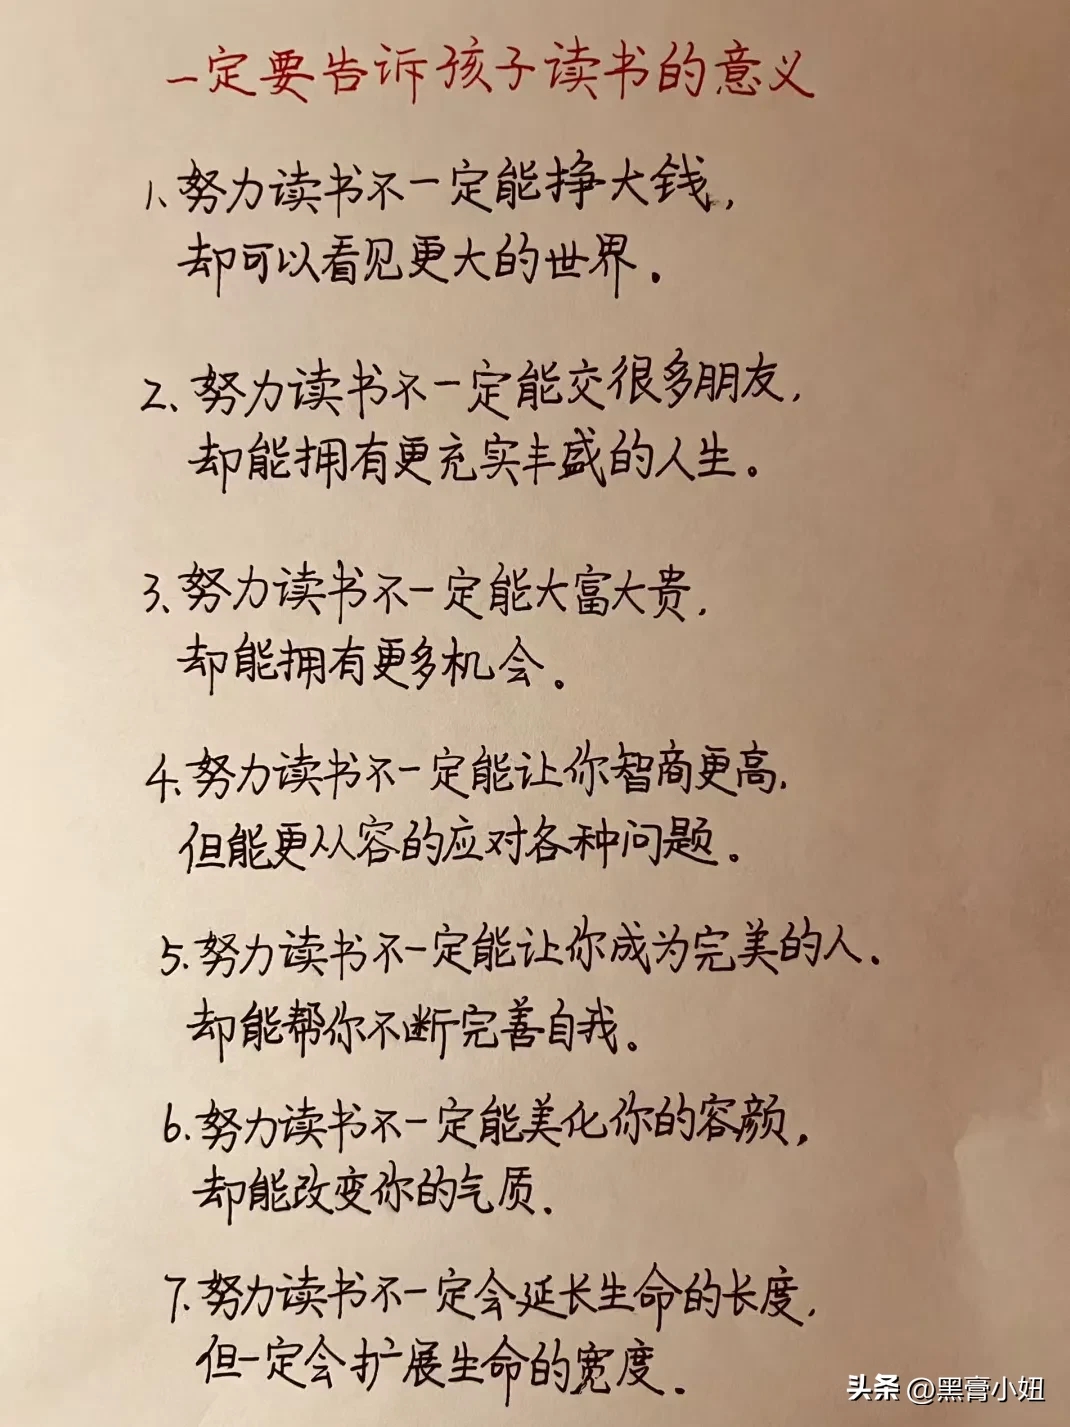 一定要告诉孩子读书的意义
1、努力读书不一定能挣大钱,
却可以看见更大的世界.
2、努力读书不一定能交很多朋友,
却能拥有更充实丰盛的人生。
3、努力读书不一定能大富大贵,
却能拥有更多机会。
4、努力读书不一定能让你智商更高,
但能更从容的应对各种问题。
5.努力读书不一定能让你成为完美的人.
却能帮你不断完善自我。
6.努力读书不一定能美化你的容颜,
却能改变你的气质.
7.努力读书不一定会延长生命的长度,
但一定会扩展生命的宽度.
头条 @黑膏小妞